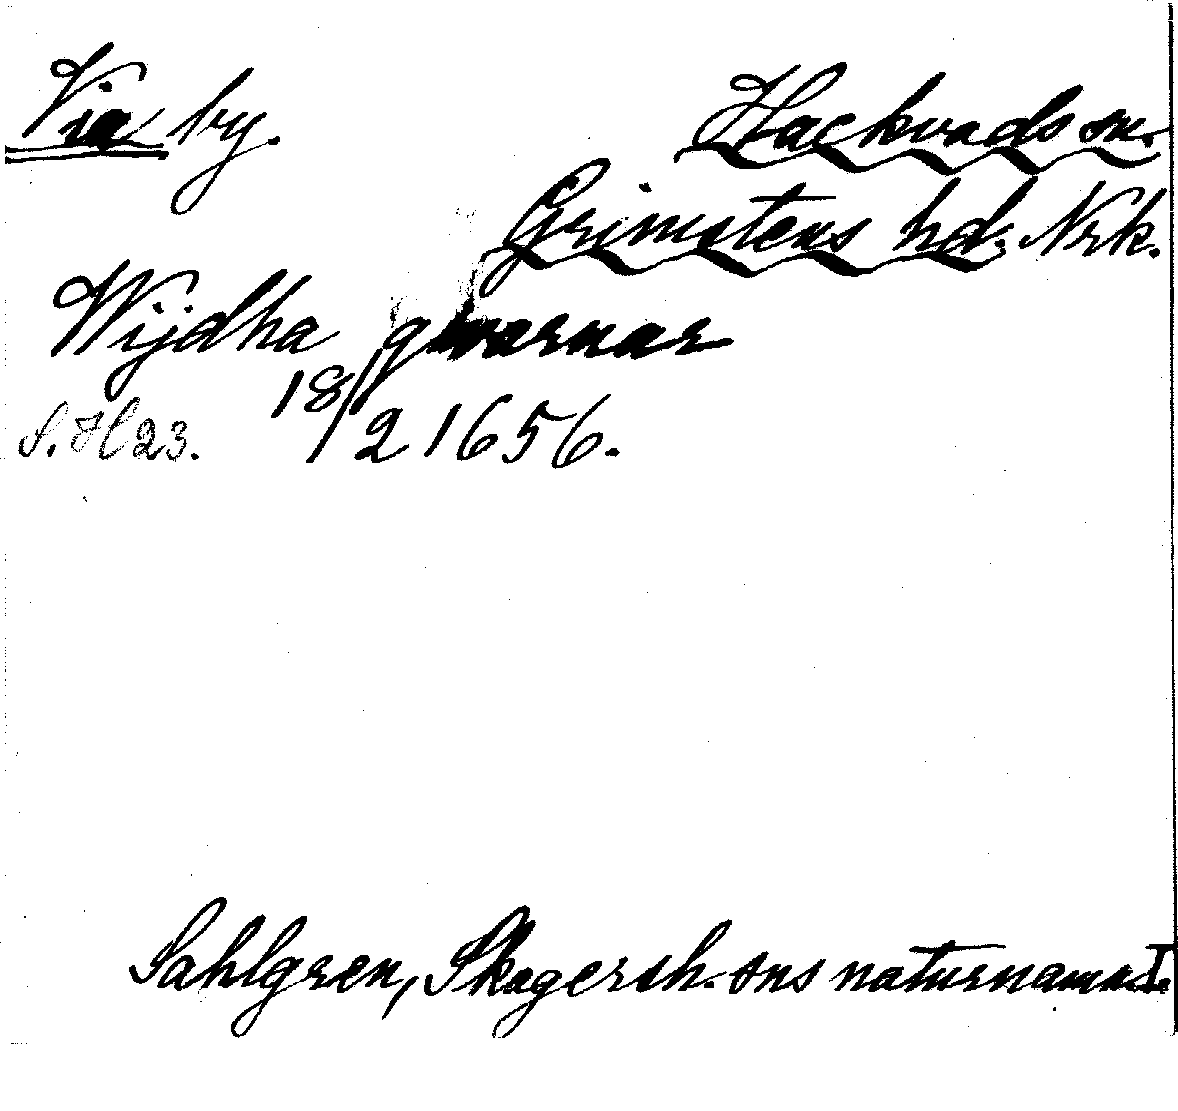 Via by.
Hackvads sn.
Grimstens hd. Nrk.
Wijdha qwarnar
18/2 1656.
S. H 23.
Sahlgren, Skagersh. sns naturnamn. I.